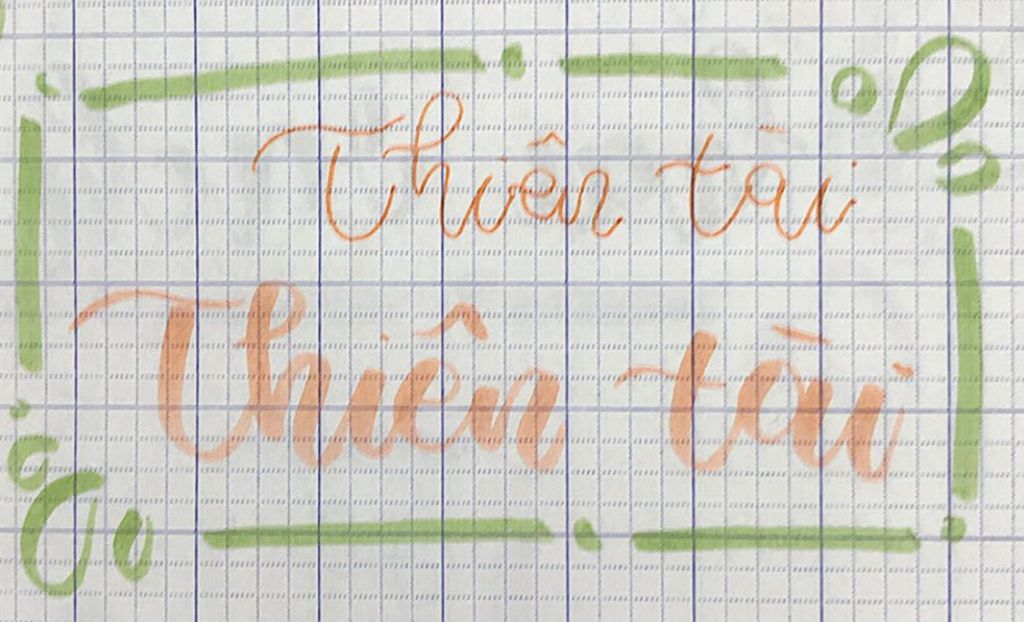 Thiên tài
Thiên tài